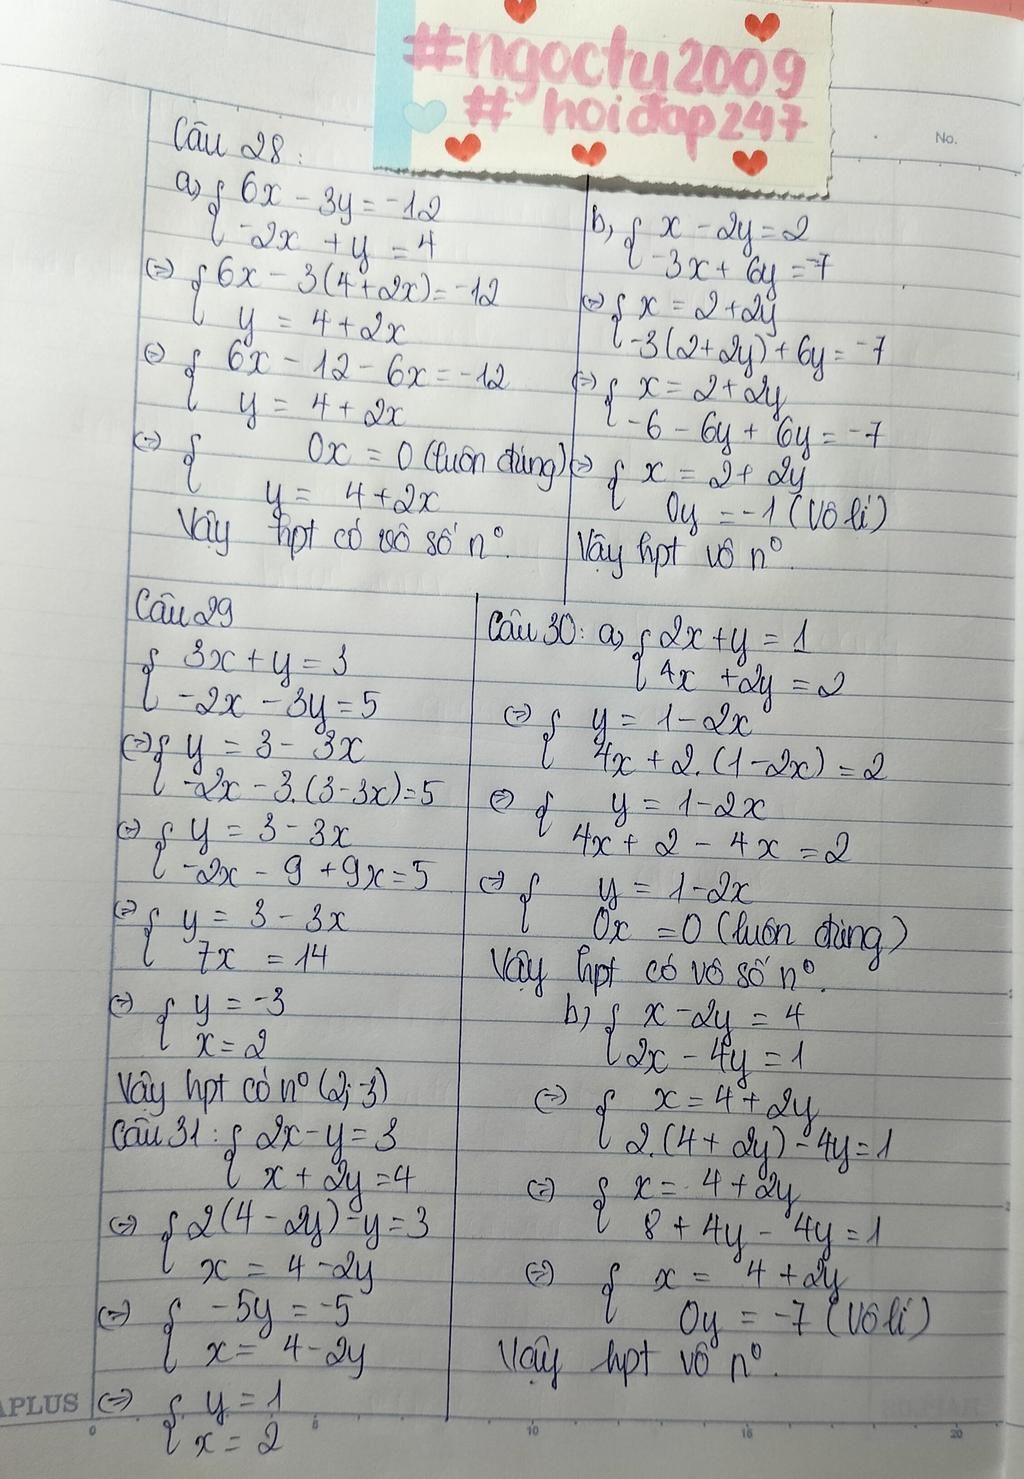 #ngoctu2009
# hoidap247
No.
Câu 28:
a, { 6x - 3y = -12
-2x + y = 4
<=> { 6x - 3(4+2x) = -12
y = 4+2x
<=> { 6x - 12 - 6x = -12
y = 4+2x
<=> { 0x = 0 (luôn đúng)
y = 4+2x
Vậy hpt có vô số n⁰.
b, { x - 2y = 2
-3x + 6y = -7
<=> { x = 2+2y
-3(2+2y) + 6y = -7
<=> { x = 2+2y
-6 - 6y + 6y = -7
<=> { x = 2+2y
0y = -1 (Vô lí)
Vậy hpt vô n⁰.
Câu 29
{ 3x + y = 3
-2x - 3y = 5
<=> { y = 3 - 3x
-2x - 3.(3-3x) = 5
<=> { y = 3 - 3x
-2x - 9 + 9x = 5
<=> { y = 3 - 3x
7x = 14
<=> { y = -3
x = 2
Vậy hpt có n⁰ (2;-3)
Câu 31: { 2x - y = 3
x + 2y = 4
<=> { 2(4 - 2y) - y = 3
x = 4 - 2y
<=> { -5y = -5
x = 4 - 2y
<=> { y = 1
x = 2
Câu 30: a, { 2x + y = 1
4x + 2y = 2
<=> { y = 1 - 2x
4x + 2.(1-2x) = 2
<=> { y = 1 - 2x
4x + 2 - 4x = 2
<=> { y = 1 - 2x
0x = 0 (luôn đúng)
Vậy hpt có vô số n⁰.
b, { x - 2y = 4
2x - 4y = 1
<=> { x = 4 + 2y
2.(4 + 2y) - 4y = 1
<=> { x = 4 + 2y
8 + 4y - 4y = 1
<=> { x = 4 + 2y
0y = -7 (Vô lí)
Vậy hpt vô n⁰.
APLUS
0 5 10 15 20